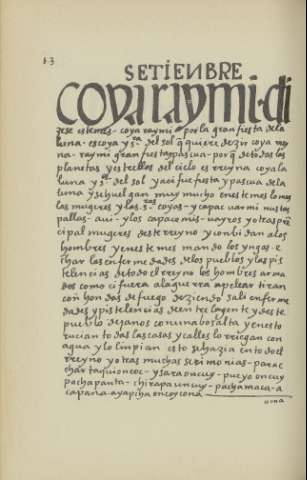 63
SETIENBRE
COYA RAYMI. di
zese este mes - coya raymi por la gran fiesta de la
luna - es coya y s.ra del sol q̃ quiere dezir coya ray
na - raymi gran fiesta y pascua - por q̃ de todas las
planetas y estrellas del cielo es rreyna coya la
luna y s.ra del sol y aci fue fiesta y pascua de la
luna y se huelgan muy mucho en este mes lo mas
las mugeres y las s.ras coyas - y capac uarmi nustas
pallas - aui - y los capac omis - uayros y otras prin
cipal mugeres deste rreyno y conbidan a los
hombres y en este mes mando los yngas e
char las enfermedades de los pueblos y las pis
telencias de todo el rreyno los hombres arma
dos como ci fuera a la guerra a pelear tiran
con hondas de fuego deziendo sali enferme
dades y pistelencias de entre la gente y deste
pueblo dejanos con una bos alta y en esto
rucian todas las casas y calles lo rriegan con
agua y lo linpian esto se hazia en todo el
rreyno y otras muchas serimonias - para e
char taqui oncoc - y sara oncuy - pucyo oncuy
pacha panta - chirapa uncuy - pacha maca - a
capana - ayapcha oncoycona
uma